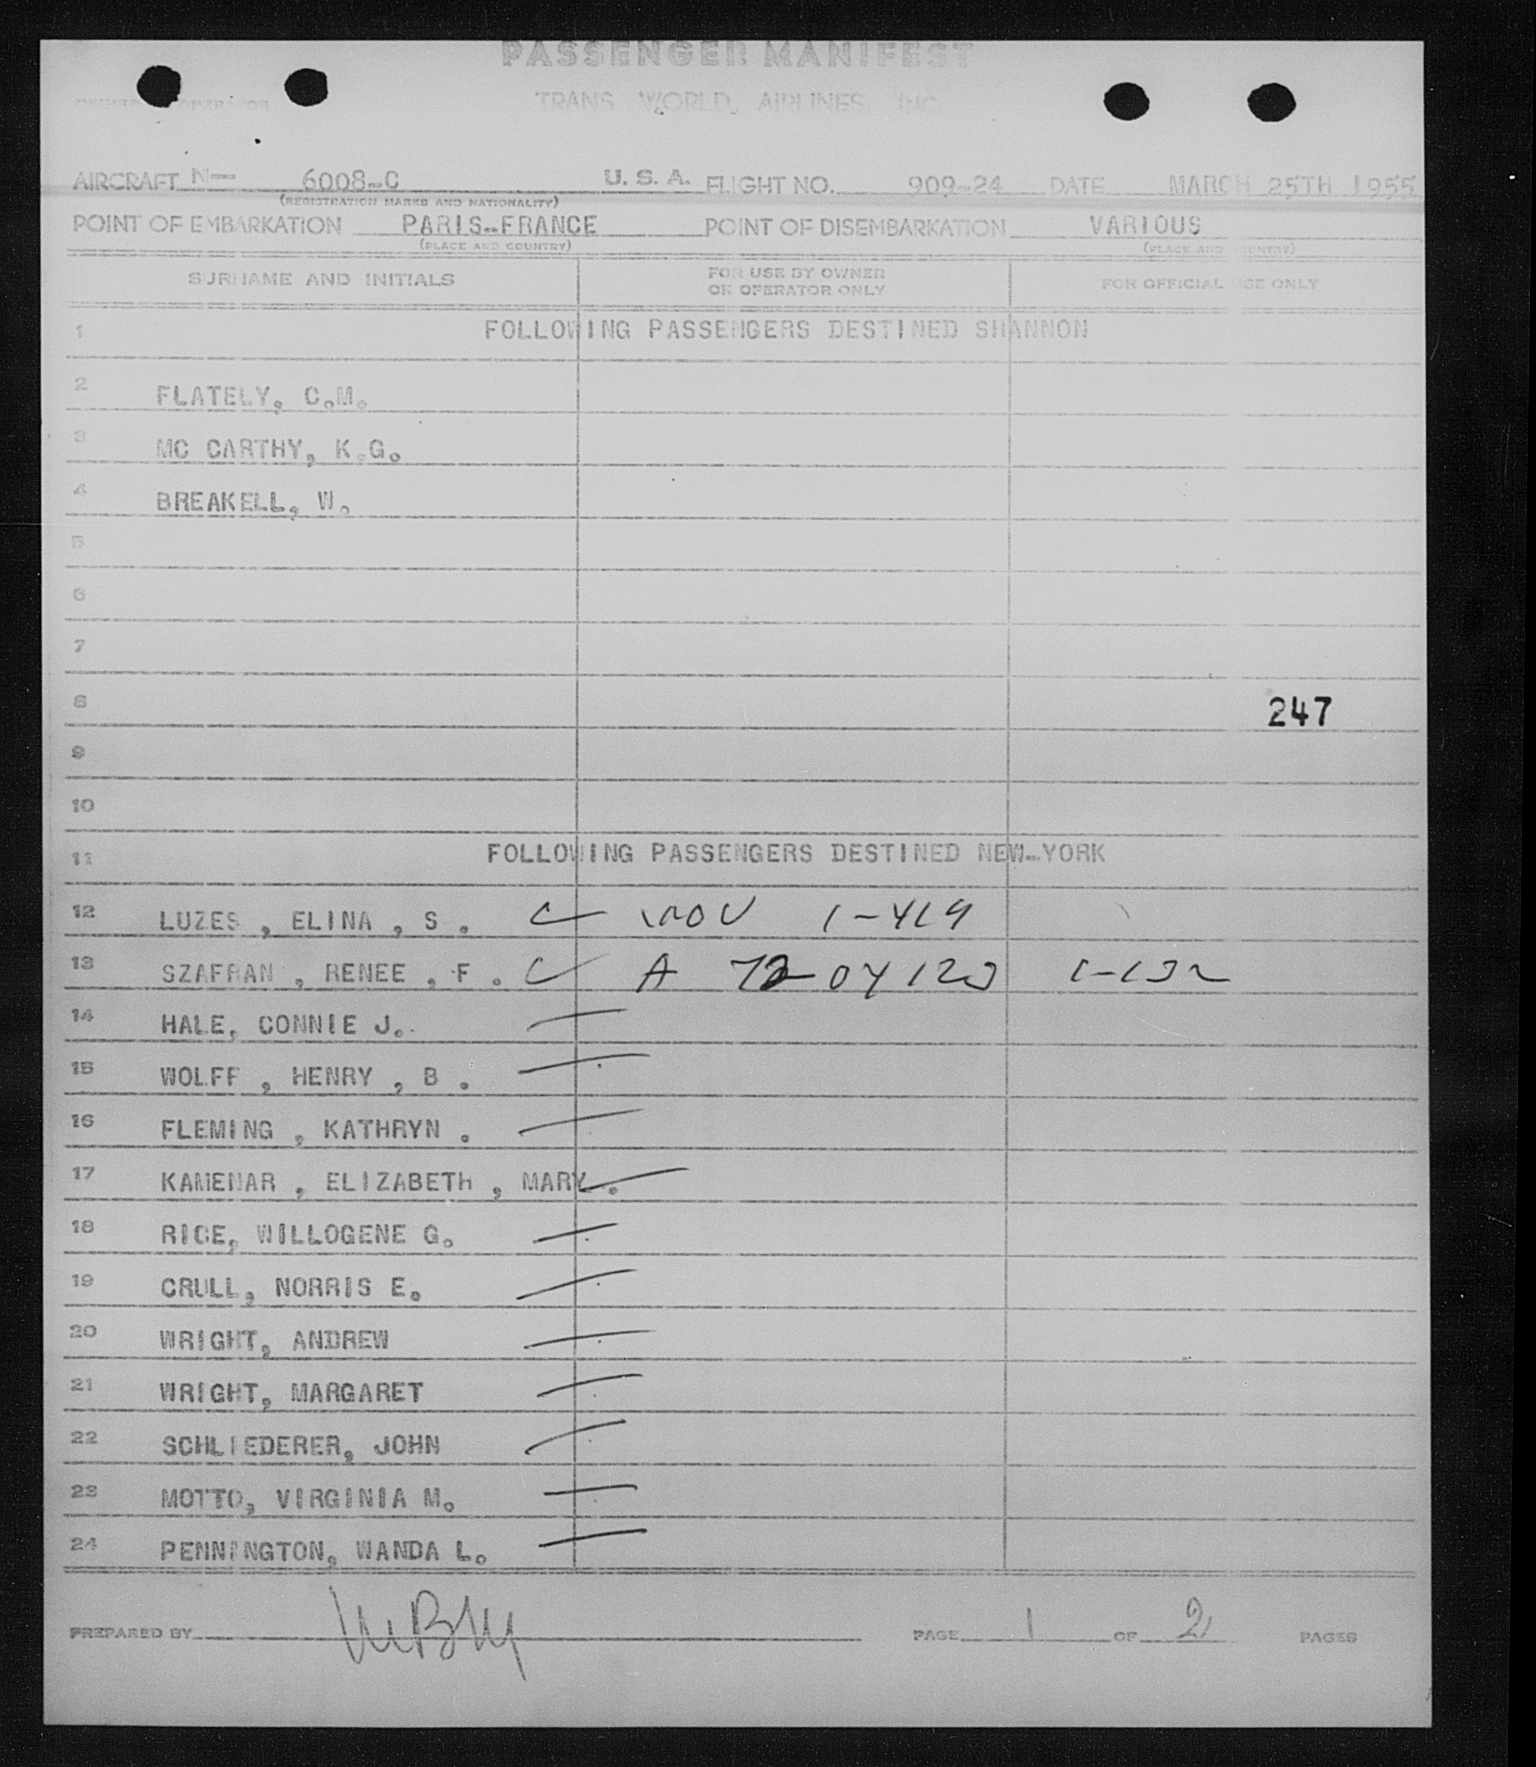 PASSENGER MANIFEST
TRANS WORLD AIRLINES, INC
AIRCRAFT N— 6008-C U. S. A. FLIGHT NO. 909-24 DATE MARCH 25TH 1955
(REGISTRATION MARKS AND NATIONALITY)
POINT OF EMBARKATION PARIS-FRANCE POINT OF DISEMBARKATION VARIOUS
(PLACE AND COUNTRY) (PLACE AND COUNTRY)
SURNAME AND INITIALS FOR USE BY OWNER OR OPERATOR ONLY FOR OFFICIAL USE ONLY
1 FOLLOWING PASSENGERS DESTINED SHANNON
2 FLATELY, C.M.
3 MC CARTHY, K.G.
4 BREAKELL, W.
5
6
7
8 247
9
10
11 FOLLOWING PASSENGERS DESTINED NEW-YORK
12 LUZES , ELINA , S . 1-419
13 SZAFRAN , RENEE , F . A 1-132
14 HALE, CONNIE J.
15 WOLFF , HENRY , B .
16 FLEMING , KATHRYN .
17 KAMENAR , ELIZABETH , MARY .
18 RICE, WILLOGENE G.
19 CRULL, NORRIS E.
20 WRIGHT, ANDREW
21 WRIGHT, MARGARET
22 SCHLIEDERER, JOHN
23 MOTTO, VIRGINIA M.
24 PENNINGTON, WANDA L.
PREPARED BY PAGE 1 OF 2 PAGES